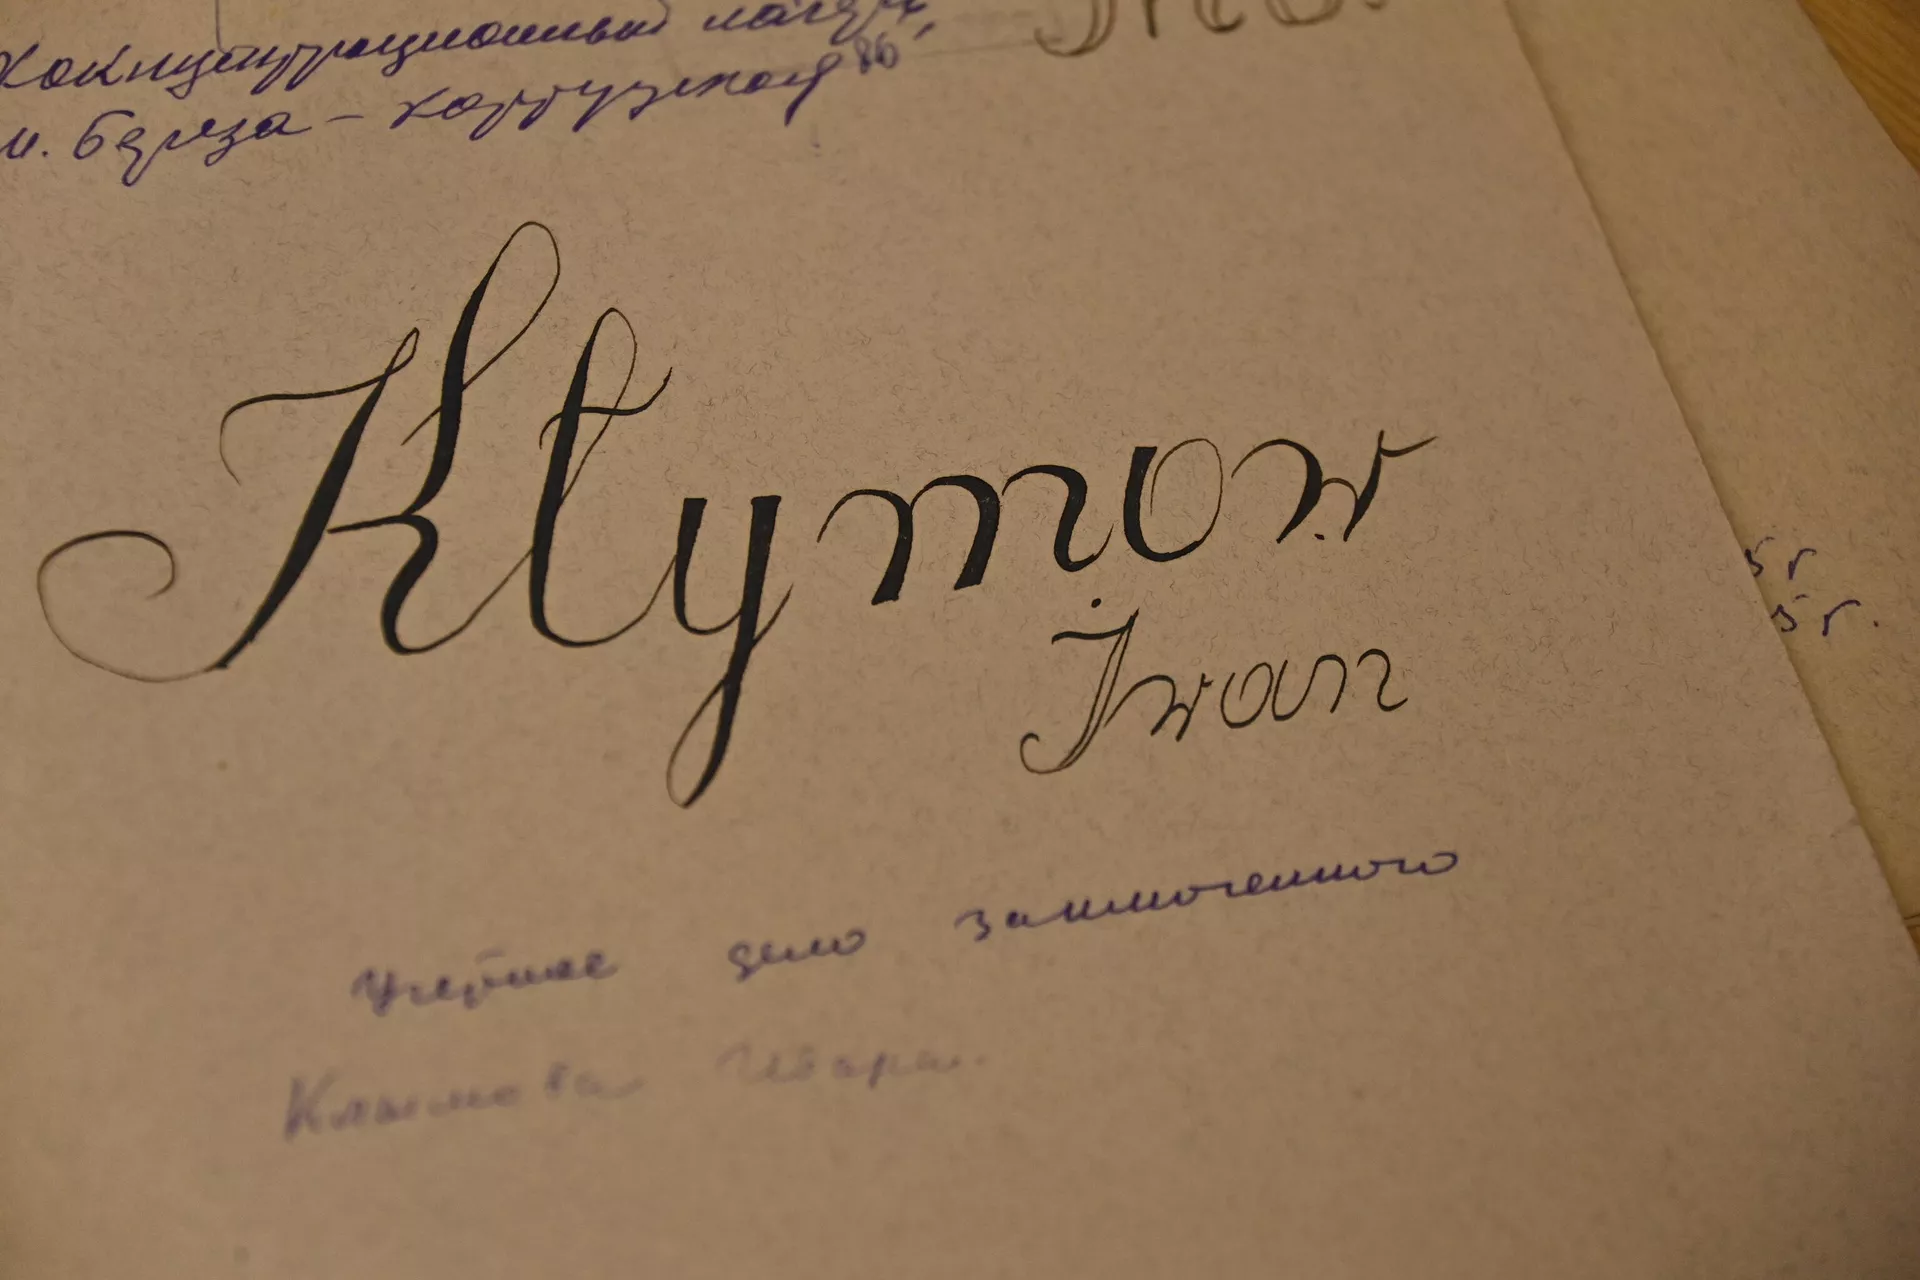 Концентрационный лагерь
м. Береза-Картузская
Kłymow
Iwan
5 г
5 г.
Учетное дело заключенного
Клымова Ивана.